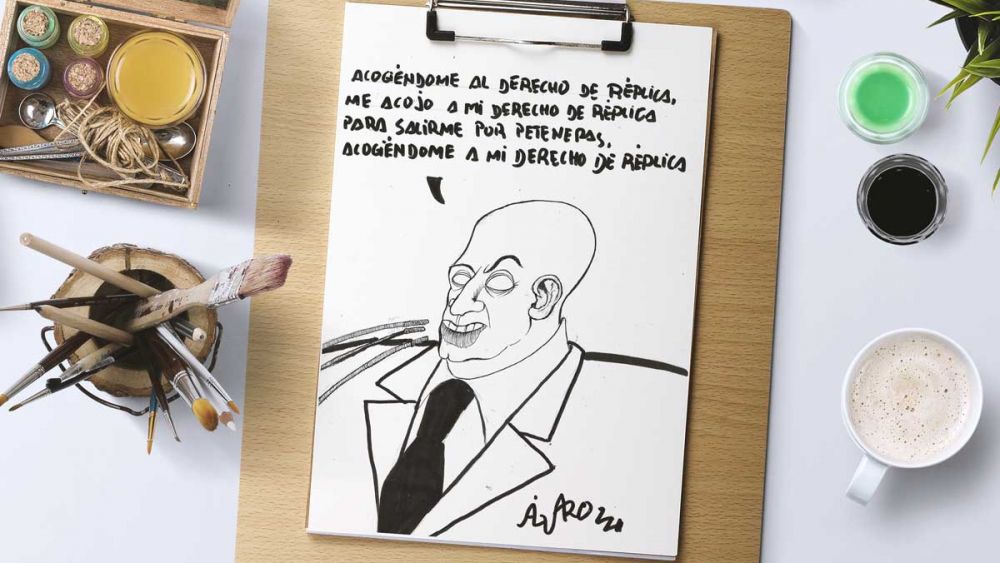 ACOGIÉNDOME AL DERECHO DE RÉPLICA,
ME ACOJO A MI DERECHO DE RÉPLICA
PARA SALIRME POR PETENERAS,
ACOGIÉNDOME A MI DERECHO DE RÉPLICA